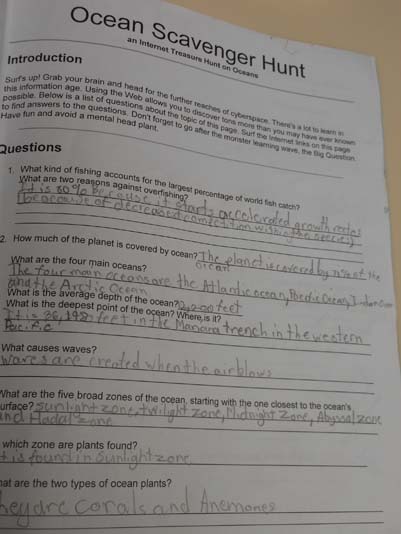 Ocean Scavenger Hunt
an Internet Treasure Hunt on Oceans
Introduction
Surf's up! Grab your brain and head for the further reaches of cyberspace. There's a lot to learn in
this information age. Using the Web allows you to discover tons more than you may have ever known
possible. Below is a list of questions about the topic of this page. Surf the Internet links on this page
to find answers to the questions. Don't forget to go after the monster learning wave, the Big Question.
Have fun and avoid a mental head plant.
Questions
1. What kind of fishing accounts for the largest percentage of world fish catch?
What are two reasons against overfishing?
It is 80% because it starts accelerated growth rates
because of decreased competition within the species
2. How much of the planet is covered by ocean? The planet is covered by of the
ocean
What are the four main oceans?
The four main oceans are the Atlantic ocean, Pacific Ocean, Indian Ocean
and the Arctic Ocean
What is the average depth of the ocean? feet
What is the deepest point of the ocean? Where is it?
It is 36,198 feet in the Mariana trench in the western
Pacific
What causes waves?
waves are created when the air blows
What are the five broad zones of the ocean, starting with the one closest to the ocean's
urface? sunlight zone, twilight zone, Midnight Zone, Abyssal zone
and Hadal zone
which zone are plants found?
t is found in sunlight zone
hat are the two types of ocean plants?
hey are Corals and Anemones